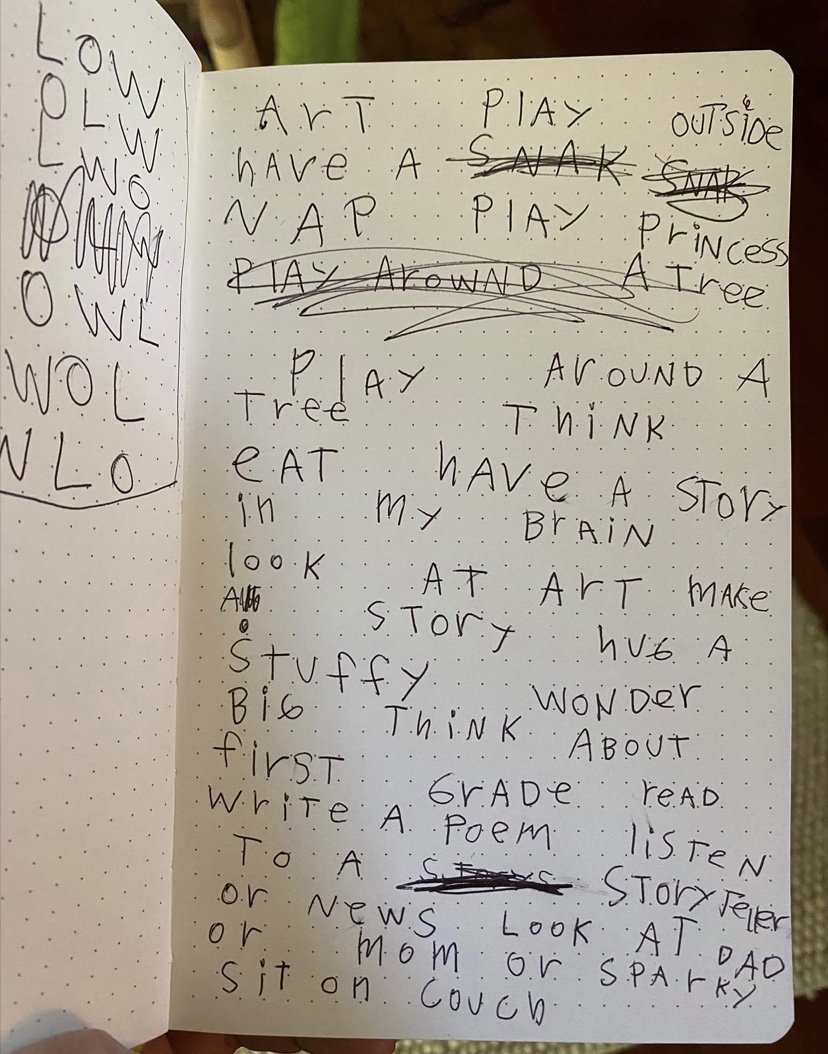 LOW
OLW
LWO
OWL
WOL
WLO
ArT PlAy OUTSiDe
hAve A SNAK SNAK
NAP PlAy PriNcess
PlAy ArowND A Tree
PlAy ArOUND A
Tree ThiNK
eAT hAVe A STOry
in my BrAiN
look AT ArT mAKe
A STOry hUG A
STuffy
BiG ThiNK WONDer
first ABOUT
GrADe reAD
write A Poem liSTeN
To A STOry Teller
or News LOOK AT DAD
or mom or SPArKy
Sit on Couch